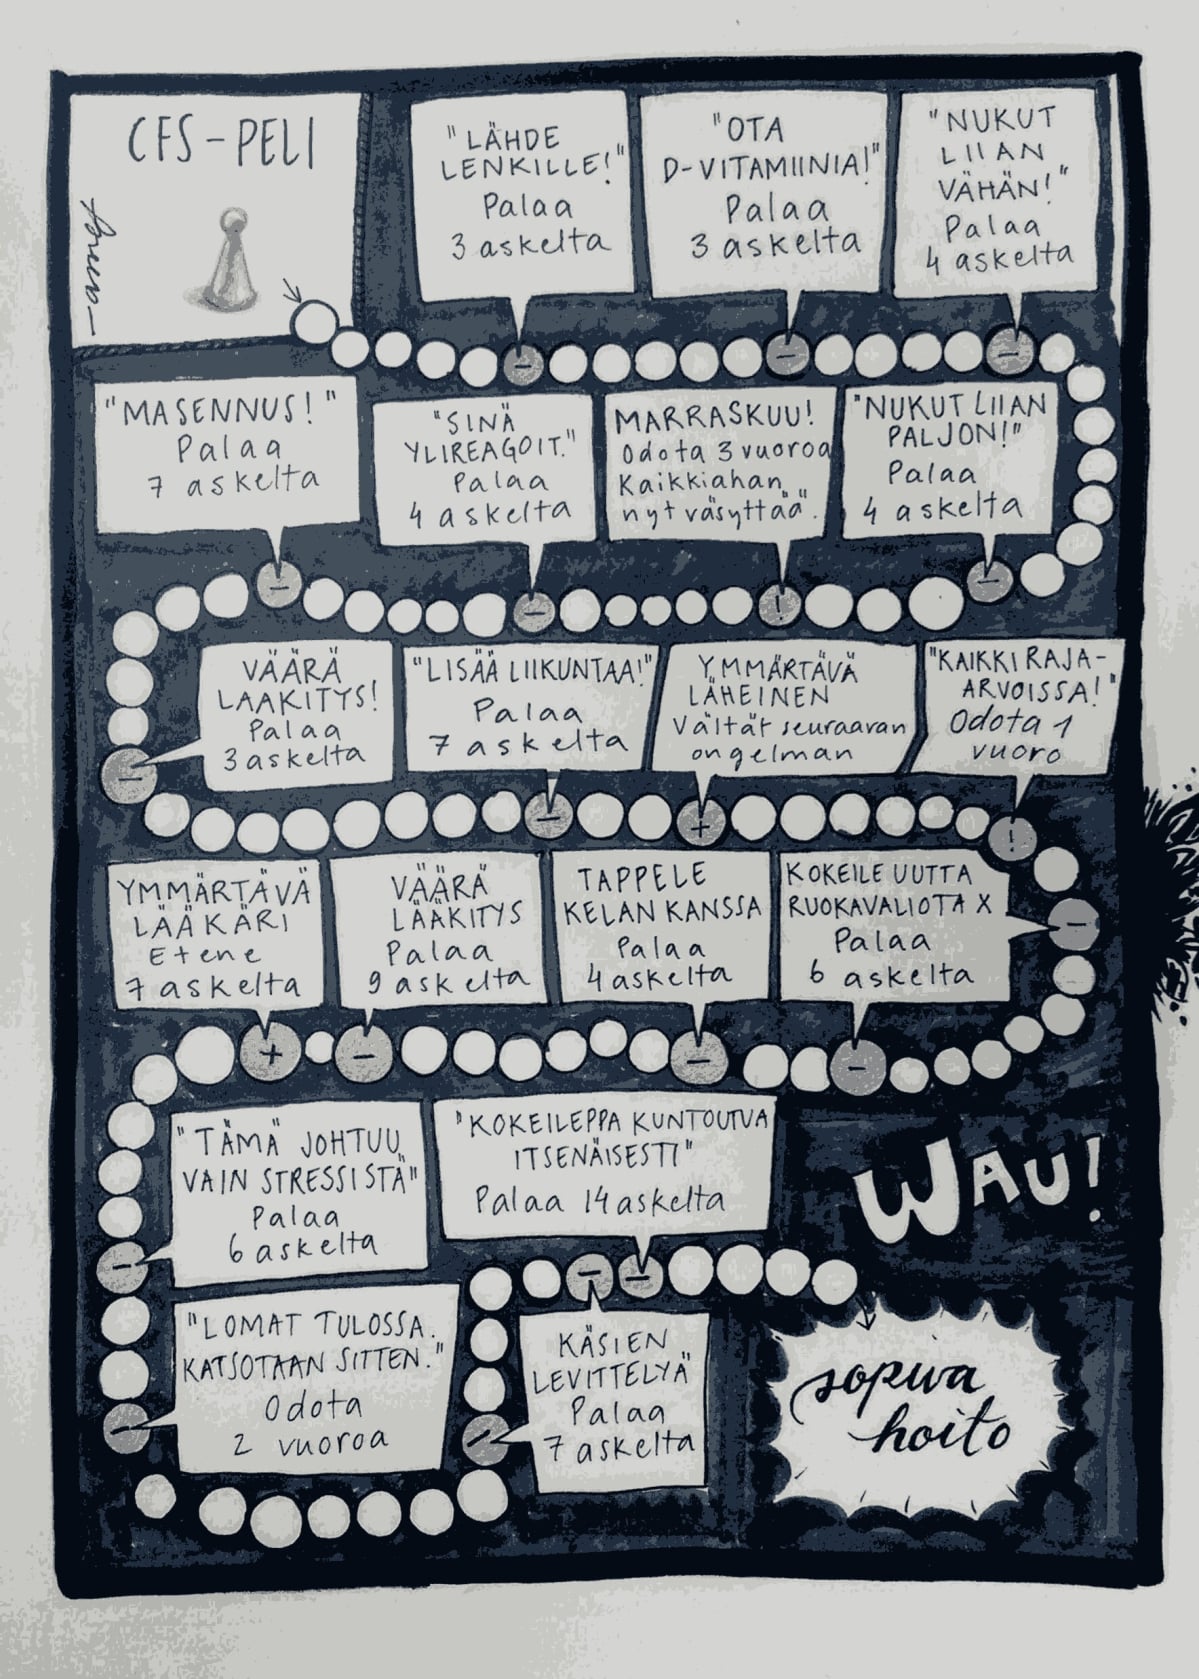 CFS-PELI
"LÄHDE
LENKILLE!"
Palaa
3 askelta
"OTA
D-VITAMIINIA!"
Palaa
3 askelta
"NUKUT
LIIAN
VÄHÄN!"
Palaa
4 askelta
"MASENNUS!"
Palaa
7 askelta
"SINÄ
YLIREAGOIT."
Palaa
4 askelta
MARRASKUU!
Odota 3 vuoroa
Kaikkiahan
nyt väsyttää".
"NUKUT LIIAN
PALJON!"
Palaa
4 askelta
VÄÄRÄ
LAAKITYS!
Palaa
3 askelta
"LISÄÄ LIIKUNTAA!"
Palaa
7 askelta
YMMÄRTÄVÄ
LÄHEINEN
Vältät seuraavan
ongelman
"KAIKKI RAJA-
ARVOISSA!"
Odota 1
vuoro
YMMÄRTÄVÄ
LÄÄKÄRI
Etene
7 askelta
VÄÄRÄ
LÄÄKITYS
Palaa
9 askelta
TAPPELE
KELAN KANSSA
Palaa
4 askelta
KOKEILE UUTTA
RUOKAVALIOTA X
Palaa
6 askelta
"TÄMÄ JOHTUU
VAIN STRESSISTÄ"
Palaa
6 askelta
"KOKEILEPPA KUNTOUTUA
ITSENÄISESTI"
Palaa 14 askelta
WAU!
"LOMAT TULOSSA.
KATSOTAAN SITTEN."
Odota
2 vuoroa
KÄSIEN
LEVITTELYÄ
Palaa
7 askelta
sopiva
hoito